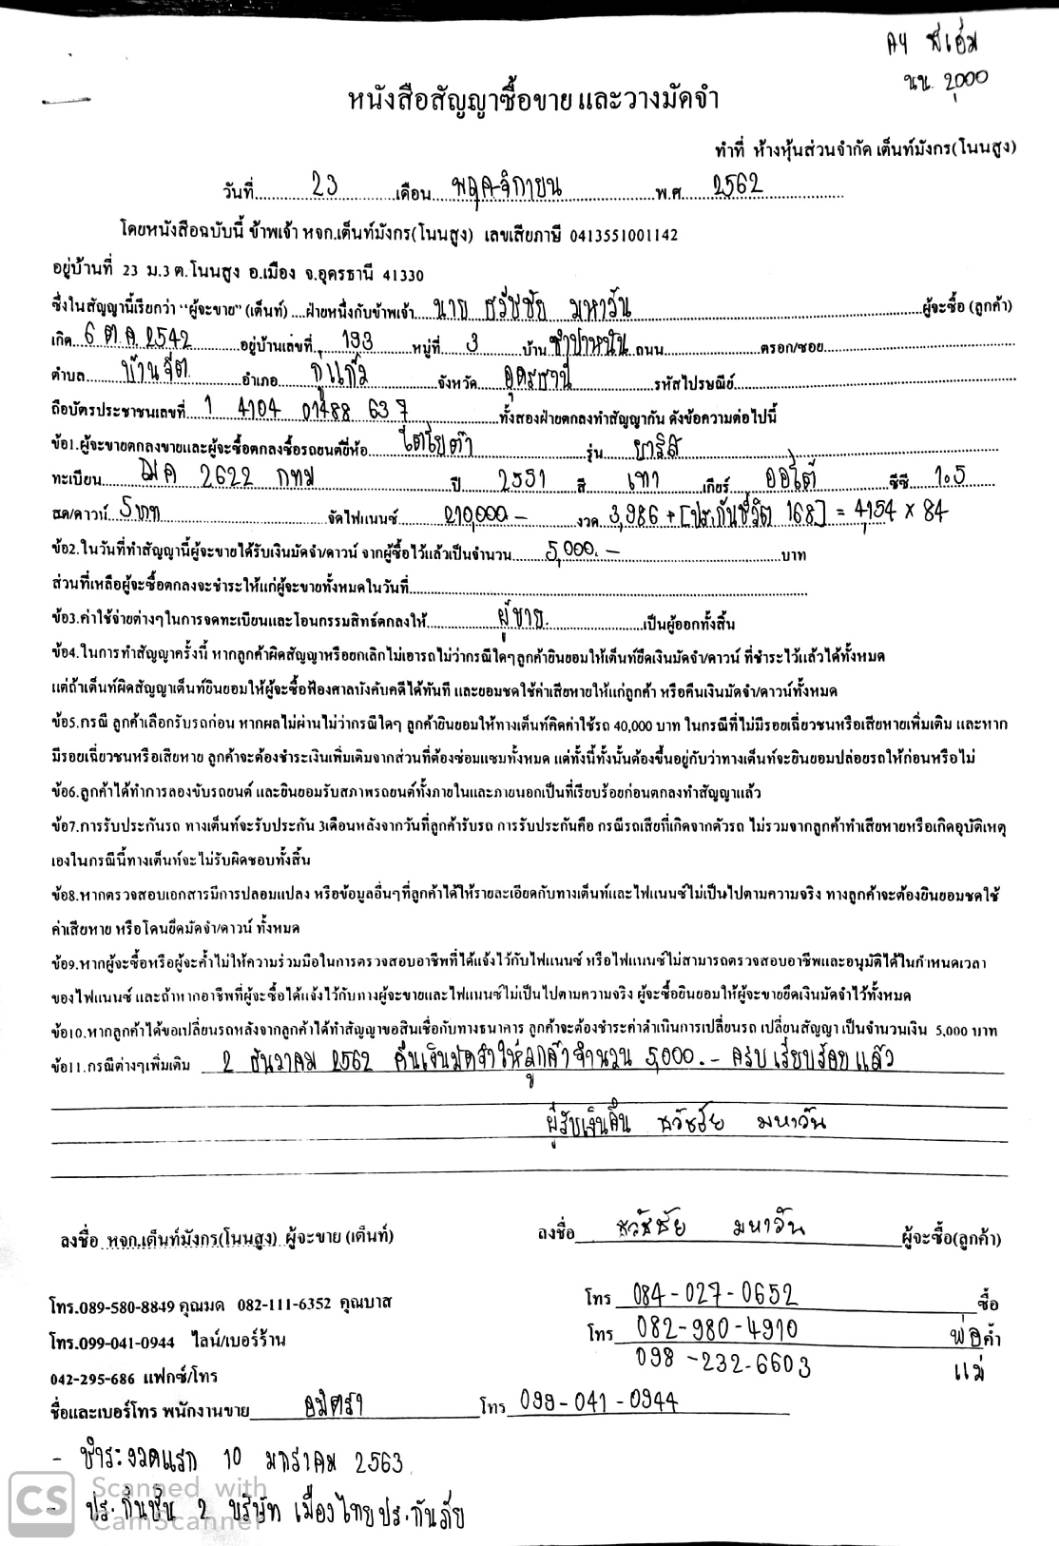 AY พี่เอ๋ม
นน. 2,000
หนังสือสัญญาซื้อขาย และวางมัดจำ
ทำที่ ห้างหุ้นส่วนจำกัด เต็นท์มังกร(โนนสูง)
วันที่ 23 เดือน พฤศจิกายน พ.ศ. 2562
โดยหนังสือฉบับนี้ ข้าพเจ้า หจก.เต็นท์มังกร(โนนสูง) เลขเสียภาษี 0413551001142
อยู่บ้านที่ 23 ม.3 ต.โนนสูง อ.เมือง จ.อุดรธานี 41330
ซึ่งในสัญญานี้เรียกว่า "ผู้จะขาย" (เต็นท์) ....ฝ่ายหนึ่งกับข้าพเจ้า นาย ธวัชชัย มหาวัน ผู้จะซื้อ (ลูกค้า)
เกิด 6 ต.ค. 2542 อยู่บ้านเลขที่ 193 หมู่ที่ 3 บ้าน ชำป่าหนัน ถนน ตรอก/ซอย
ตำบล บ้านจีต อำเภอ กู่แก้ว จังหวัด อุดรธานี รหัสไปรษณีย์
ถือบัตรประชาชนเลขที่ 1 4104 01488 63 7 ทั้งสองฝ่ายตกลงทำสัญญากัน ดังข้อความต่อไปนี้
ข้อ1.ผู้จะขายตกลงขายและผู้จะซื้อตกลงซื้อรถยนต์ยี่ห้อ โตโยต้า รุ่น ยาริส
ทะเบียน 2622 กทม ปี 2551 สี เทา เกียร์ ออโต้ ซีซี 1.5
สด/ดาวน์ 5 บาท จัดไฟแนนซ์ 210,000 – งวด 3,986 + [ประกันชีวิต 168] = 4,154 x 84
ข้อ2.ในวันที่ทำสัญญานี้ผู้จะขายได้รับเงินมัดจำ/ดาวน์ จากผู้ซื้อไว้แล้วเป็นจำนวน 5,000. – บาท
ส่วนที่เหลือผู้จะซื้อตกลงจะชำระให้แก่ผู้จะขายทั้งหมดในวันที่
ข้อ3.ค่าใช้จ่ายต่างๆในการจดทะเบียนและโอนกรรมสิทธ์ตกลงให้ ผู้ขาย. เป็นผู้ออกทั้งสิ้น
ข้อ4.ในการทำสัญญาครั้งนี้ หากลูกค้าผิดสัญญาหรือยกเลิกไม่เอารถไม่ว่ากรณีใดๆลูกค้ายินยอมให้เต็นท์ยึดเงินมัดจำ/ดาวน์ ที่ชำระไว้แล้วได้ทั้งหมด
แต่ถ้าเต็นท์ผิดสัญญาเต็นท์ยินยอมให้ผู้จะซื้อฟ้องศาลบังคับคดีได้ทันที และยอมชดใช้ค่าเสียหายให้แก่ลูกค้า หรือคืนเงินมัดจำ/ดาวน์ทั้งหมด
ข้อ5.กรณี ลูกค้าเลือกรับรถก่อน หากผลไม่ผ่านไม่ว่ากรณีใดๆ ลูกค้ายินยอมให้ทางเต็นท์คิดค่าใช้รถ 40,000 บาท ในกรณีที่ไม่มีรอยเฉี่ยวชนหรือเสียหายเพิ่มเติม และหาก
มีรอยเฉี่ยวชนหรือเสียหาย ลูกค้าจะต้องชำระเงินเพิ่มเติมจากส่วนที่ต้องซ่อมแซมทั้งหมด แต่ทั้งนี้ทั้งนั้นต้องขึ้นอยู่กับว่าทางเต็นท์จะยินยอมปล่อยรถให้ก่อนหรือไม่
ข้อ6.ลูกค้าได้ทำการลองขับรถยนต์ และยินยอมรับสภาพรถยนต์ทั้งภายในและภายนอกเป็นที่เรียบร้อยก่อนตกลงทำสัญญาแล้ว
ข้อ7.การรับประกันรถ ทางเต็นท์จะรับประกัน 3เดือนหลังจากวันที่ลูกค้ารับรถ การรับประกันคือ กรณีรถเสียที่เกิดจากตัวรถ ไม่รวมจากลูกค้าทำเสียหายหรือเกิดอุบัติเหตุ
เองในกรณีนี้ทางเต็นท์จะไม่รับผิดชอบทั้งสิ้น
ข้อ8.หากตรวจสอบเอกสารมีการปลอมแปลง หรือข้อมูลอื่นๆที่ลูกค้าได้ให้รายละเอียดกับทางเต็นท์และไฟแนนซ์ไม่เป็นไปตามความจริง ทางลูกค้าจะต้องยินยอมชดใช้
ค่าเสียหาย หรือโดนยึดมัดจำ/ดาวน์ ทั้งหมด
ข้อ9.หากผู้จะซื้อหรือผู้จะค้ำไม่ให้ความร่วมมือในการตรวจสอบอาชีพที่ได้แจ้งไว้กับไฟแนนซ์ หรือไฟแนนซ์ไม่สามารถตรวจสอบอาชีพและอนุมัติได้ในกำหนดเวลา
ของไฟแนนซ์ และถ้าหากอาชีพที่ผู้จะซื้อได้แจ้งไว้กับทางผู้จะขายและไฟแนนซ์ไม่เป็นไปตามความจริง ผู้จะซื้อยินยอมให้ผู้จะขายยึดเงินมัดจำไว้ทั้งหมด
ข้อ10.หากลูกค้าได้ขอเปลี่ยนรถหลังจากลูกค้าได้ทำสัญญาขอสินเชื่อกับทางธนาคาร ลูกค้าจะต้องชำระค่าดำเนินการเปลี่ยนรถ เปลี่ยนสัญญา เป็นจำนวนเงิน 5,000 บาท
ข้อ11.กรณีต่างๆเพิ่มเติม 2 ธันวาคม 2562 คืนเงินมัดจำให้ลูกค้าจำนวน 5,000. – ครบเรียบร้อยแล้ว
ผู้รับเงินคืน ธวัชชัย มหาวัน
ลงชื่อ หจก.เต็นท์มังกร(โนนสูง) ผู้จะขาย (เต็นท์) ลงชื่อ ธวัชชัย มหาวัน ผู้จะซื้อ(ลูกค้า)
โทร.089-580-8849 คุณมด 082-111-6352 คุณบาส โทร 084-027-0652 ซื้อ
โทร.099-041-0944 ไลน์/เบอร์ร้าน โทร 082-980-4910 พ่อค้ำ
098-232-6603 แม่
042-295-686 แฟกซ์/โทร
ชื่อและเบอร์โทร พนักงานขาย โทร 099-041-0944
- ชำระงวดแรก 10 มกราคม 2563
- ประกันชั้น 2 บริษัท เมืองไทยประกันภัย
CS Scanned with
CamScanner